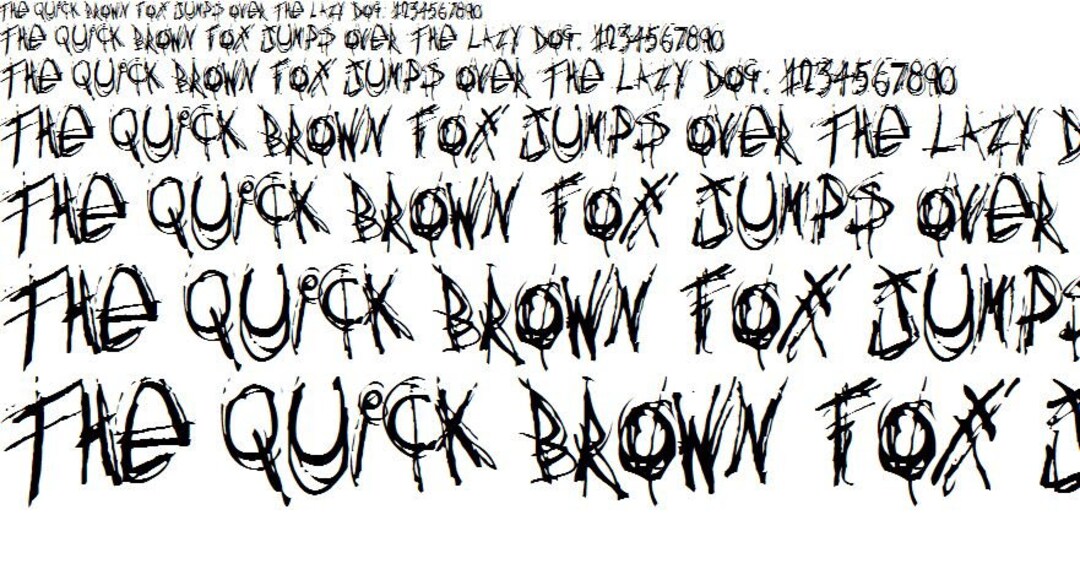 THE QUiCK BROWN FOX JUMPS OVER THE LAZY DOG. 1234567890
THE QUiCK BROWN FOX JUMPS OVER THE LAZY DOG. 1234567890
THE QUiCK BROWN FOX JUMPS OVER THE LAZY DOG. 1234567890
THE QUiCK BROWN FOX JUMPS OVER THE LAZY D
THE QUiCK BROWN FOX JUMPS OVER
THE QUiCK BROWN FOX JUMPS
THE QUiCK BROWN FOX J